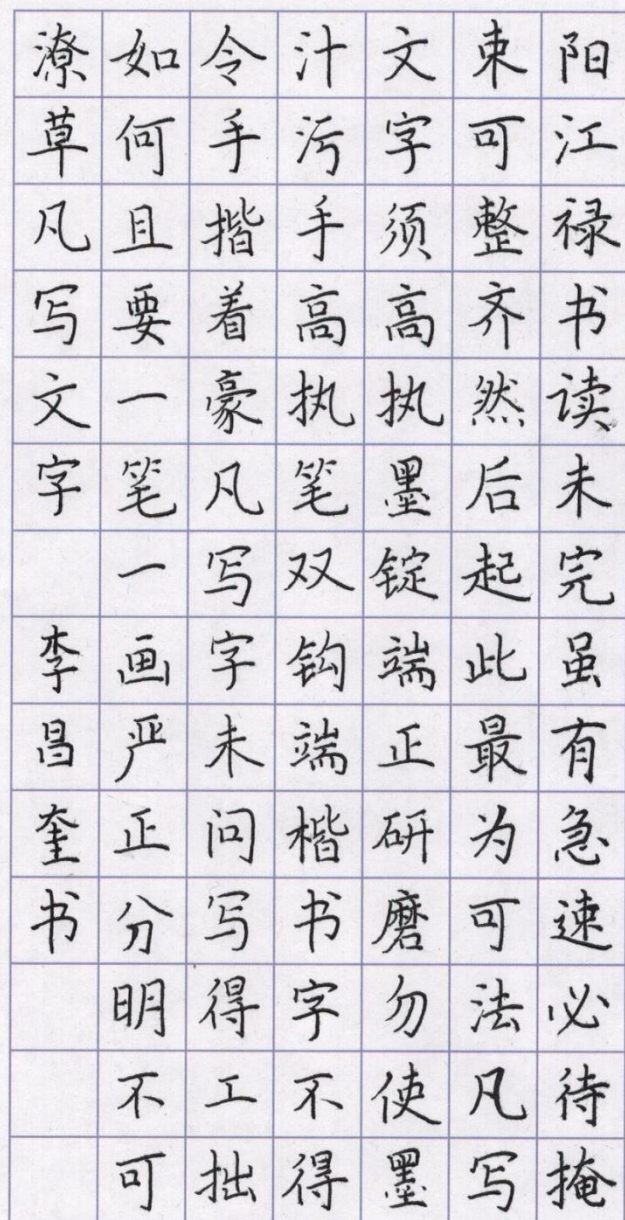 阳江禄书读未完虽有急速必待掩
束可整齐然后起此最为可法凡写
文字须高执墨锭端正研磨勿使墨
汁污手高执笔双钩端楷书字不得
令手揩着豪凡写字未问写得工拙
如何且要一笔一画严正分明不可
潦草凡写文字 李昌奎书